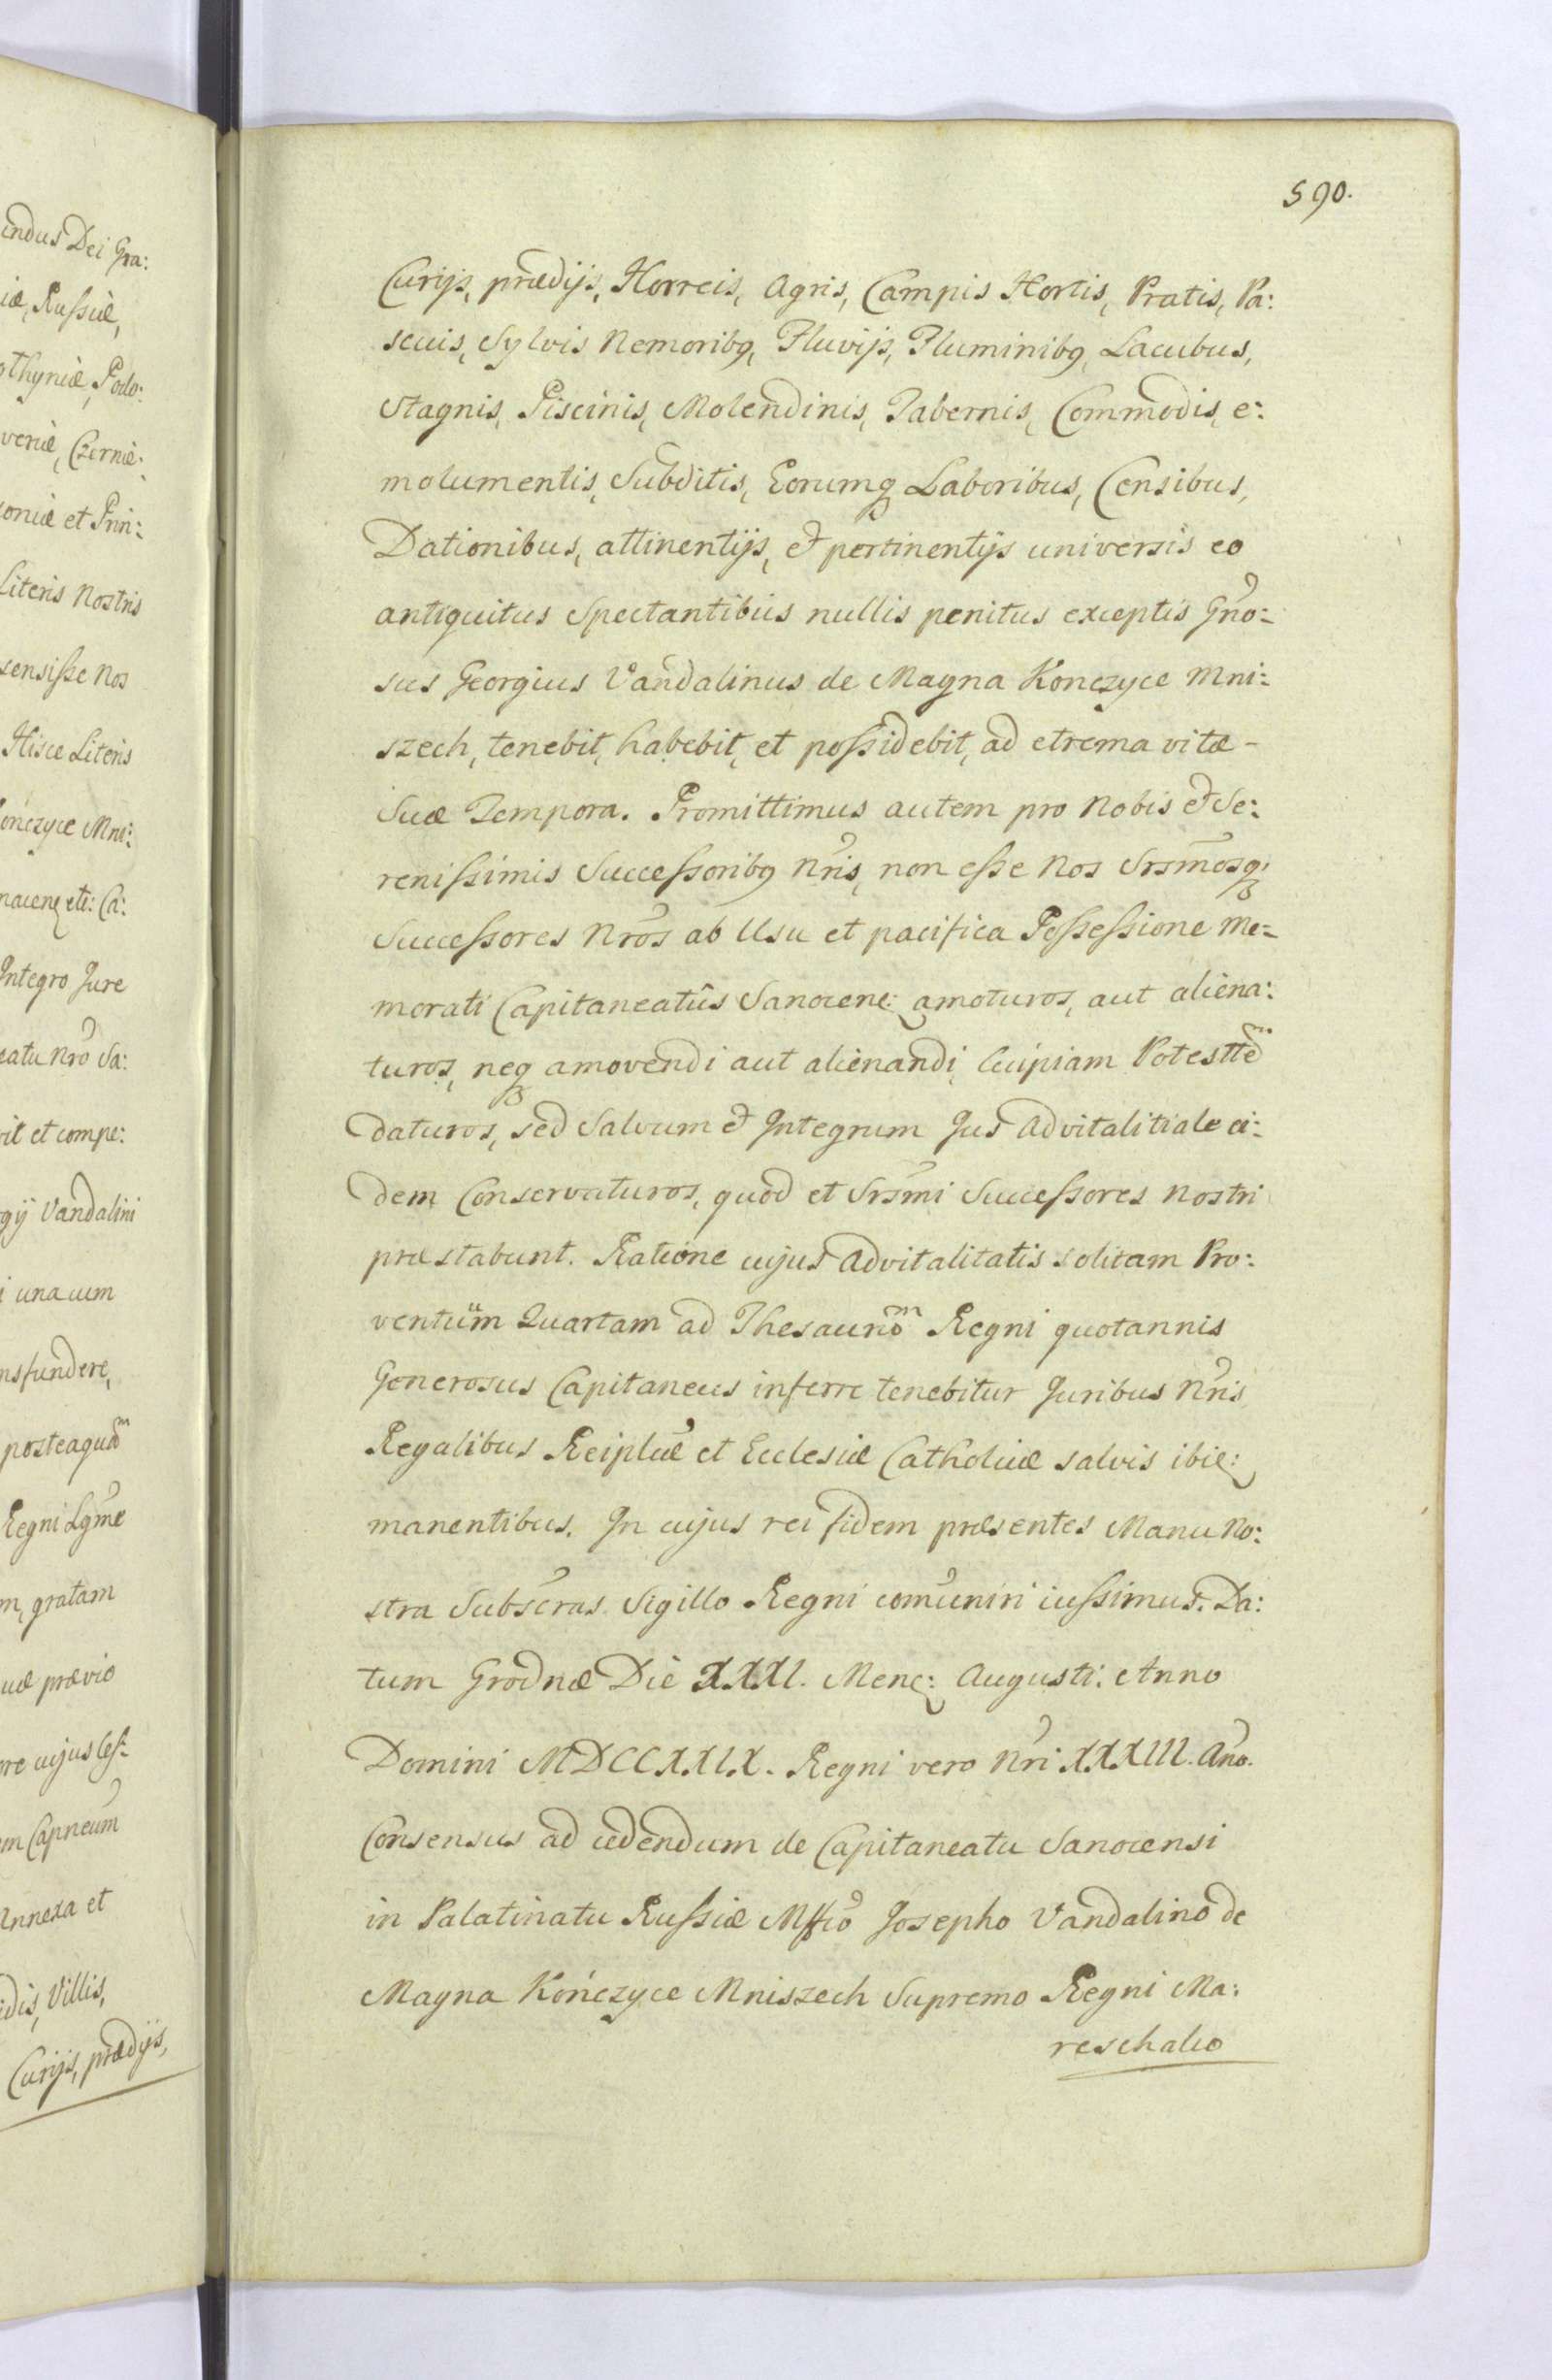 indus Dei Gra:
iæ, Russiæ,
othyniæ, Podo:
veriæ, Czernie:
oniæ et Prin:
Literis Nostris
sensisse Nos
Hisce Literis
ończyce Mni:
nocenę etc: Ca:
Integro Jure
eatu Nro Sa:
vit et compe:
gij Vandalini
i una cum
nsfundere,
posteaquam
Regni Lgme
m, gratam
uæ prævio
ore cujus Ces-
em Capneum
Annexa et
idis, Villis,
Curijs, prædijs,
590.
Curijs, prædijs, Horreis, Agris, Campis Hortis, Pratis, Pa:
scuis, Sylvis Nemoribq, Fluvijs, Fluminibq, Lacubus,
Stagnis, Piscinis, Molendinis, Tabernis, Commodis, e:
molumentis, Subditis, Eorumq Laboribus, Censibus,
Dationibus, attinentijs, et pertinentijs universis eo
antiquitus Spectantibus nullis penitus exceptis Gno-
sus Georgius Vandalinus de Magna Konczyce Mni-
szech, tenebit, habebit, et possidebit, ad etrema vitæ -
Suæ Tempora. Promittimus autem pro Nobis et Se:
renissimis Successoribq Nris, non esse Nos Srsmosq
Successores Nros ab Usu et pacifica Possessione Me-
morati Capitaneatûs Sanocenę: amoturos, aut aliena:
turos, neq amovendi aut alienandi Cuipiam Potesttem
daturos, sed Salvum et Integrum Jus Advitalitiale ei:
dem Conservaturos, quod et Srsmi Successores Nostri
præstabunt. Ratione cujus Advitalitatis solitam Pro:
ventuum Quartam ad Thesaurom Regni quotannis
Generosus Capitaneus inferre tenebitur Juribus Nris
Regalibus Reiplcæ et Ecclesiæ Catholicæ salvis ibię:
manentibus. In cujus rei fidem præsentes Manu No:
stra Subscras. Sigillo Regni comuniri iussimus. Da:
tum Grodnæ Die XXXI. Menę: Augusti. Anno
Domini MDCCXXIX. Regni vero Nri XXXIII. Ano.
Consensus ad cedendum de Capitaneatu Sanocensi
in Palatinatu Russiæ Mffco Josepho Vandalino de
Magna Kończyce Mniszech Supremo Regni Ma:
reschalco